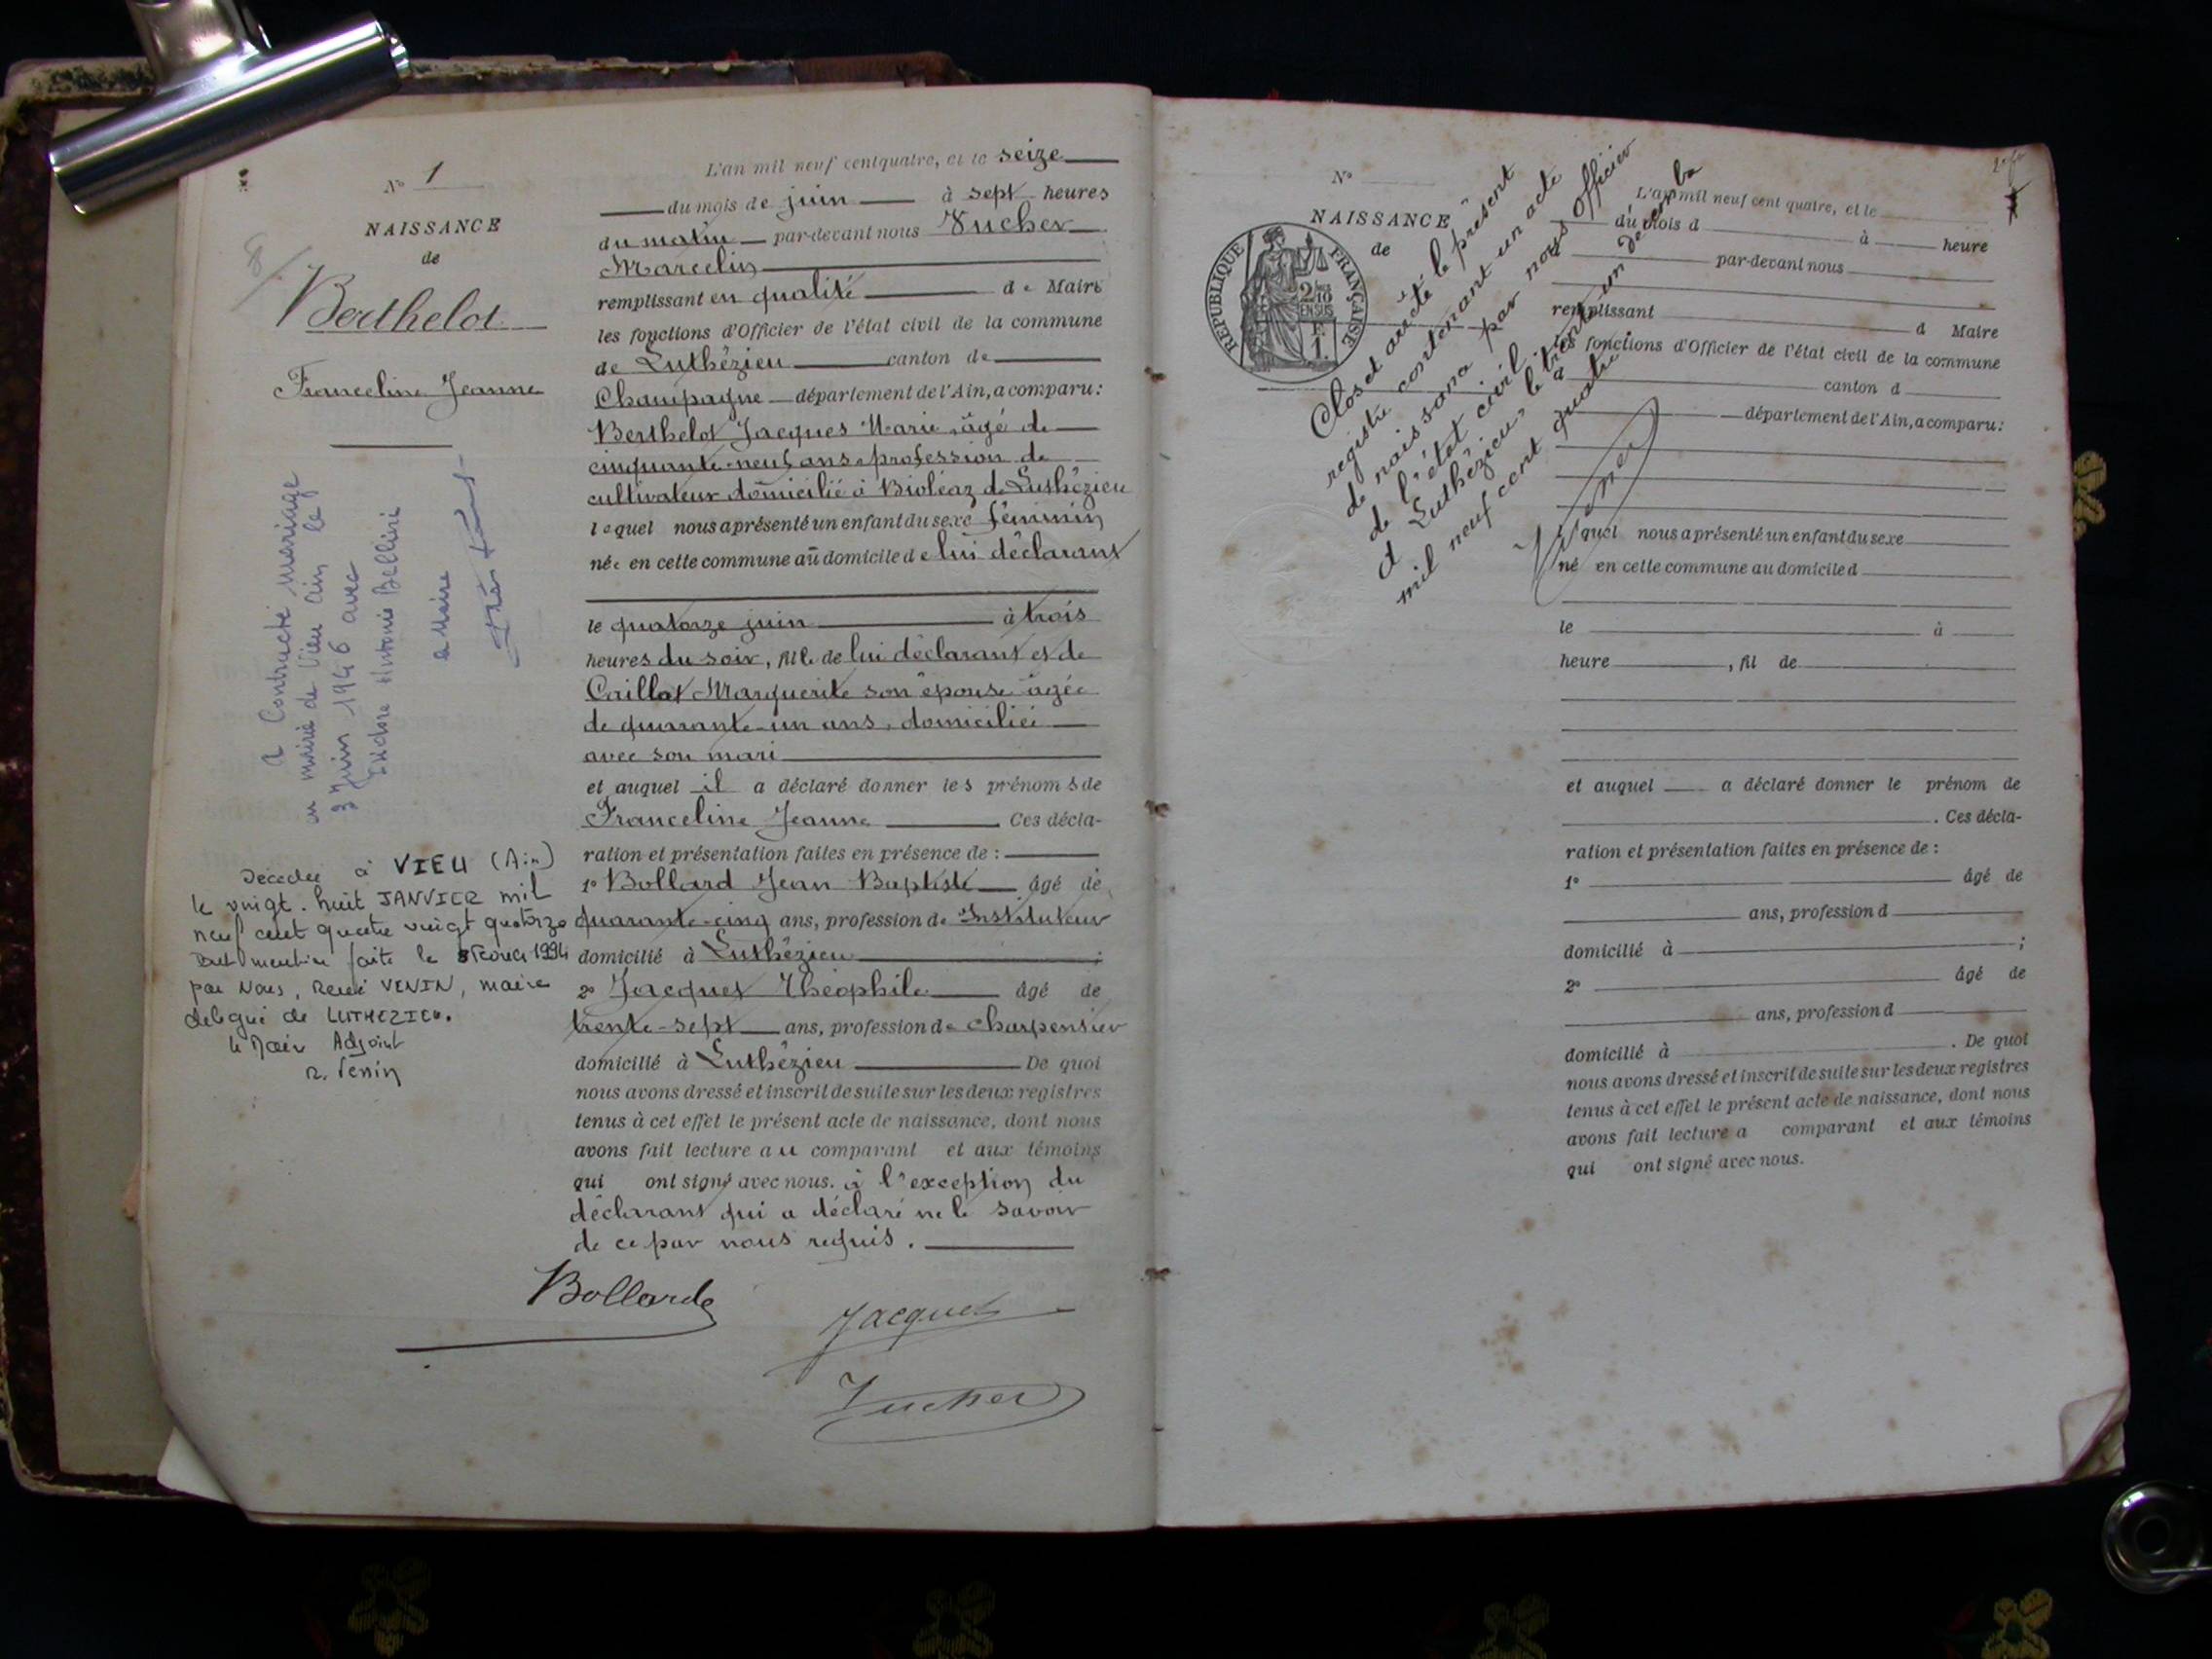 N° 1
NAISSANCE
de
Berthelot
Franceline Jeanne
a Contracté mariage
en mairie de Vieu Ain le
3 Juin 1946 avec
Isidore Antonio Bellini
le Maire
Décédée à VIEU (Ain)
le vingt-huit JANVIER mil
neuf cent quatre vingt quatorze
mention faite le 1994
par Nous, René VENIN, maire
délégué de LUTHEZIEU.
le Maire Adjoint
R. Venin
L'an mil neuf cent quatre, et le seize
du mois de juin à sept heures
du matin par-devant nous Vucher
Marcelin
remplissant en qualité de Maire
les fonctions d'Officier de l'état civil de la commune
de Luthézieu canton de
Champagne département de l'Ain, a comparu:
Berthelot Jacques Marie âgé de
cinquante-neuf ans profession de
cultivateur domicilié à Bioléaz de Luthézieu
lequel nous a présenté un enfant du sexe féminin
née en cette commune au domicile de lui déclarant
le quatorze juin à trois
heures du soir, fille de lui déclarant et de
Caillot Marguerite son épouse âgée
de quarante-un ans, domiciliée
avec son mari
et auquel il a déclaré donner les prénoms de
Franceline Jeanne Ces décla-
ration et présentation faites en présence de :
1° Bollard Jean Baptiste âgé de
quarante-cinq ans, profession de Instituteur
domicilié à Luthézieu ;
2° Jacquet Théophile âgé de
trente-sept ans, profession de charpentier
domicilié à Luthézieu De quoi
nous avons dressé et inscrit de suite sur les deux registres
tenus à cet effet le présent acte de naissance, dont nous
avons fait lecture au comparant et aux témoins
qui ont signé avec nous. à l'exception du
déclarant qui a déclaré ne le savoir
de ce par nous requis.
Bollard
Jacquet
Vucher
N°
NAISSANCE
de
RÉPUBLIQUE FRANÇAISE
2/10
EN SUS
1 F.
Clos et arrêté le présent
registre contenant un acte
de naissance par nous Officier
de l'état civil
d Luthézieu, le trente un décembre
mil neuf cent quatre
Vucher
L'an mil neuf cent quatre, et le
du mois d à heure
d par-devant nous
remplissant d Maire
les fonctions d'Officier de l'état civil de la commune
d canton d
département de l'Ain, a comparu:
lequel nous a présenté un enfant du sexe
né en cette commune au domicile d
le à
heure , fil de
et auquel a déclaré donner le prénom de
. Ces décla-
ration et présentation faites en présence de :
1° âgé de
ans, profession d
domicilié à ;
2° âgé de
ans, profession d
domicilié à . De quoi
nous avons dressé et inscrit de suite sur les deux registres
tenus à cet effet le présent acte de naissance, dont nous
avons fait lecture a comparant et aux témoins
qui ont signé avec nous.